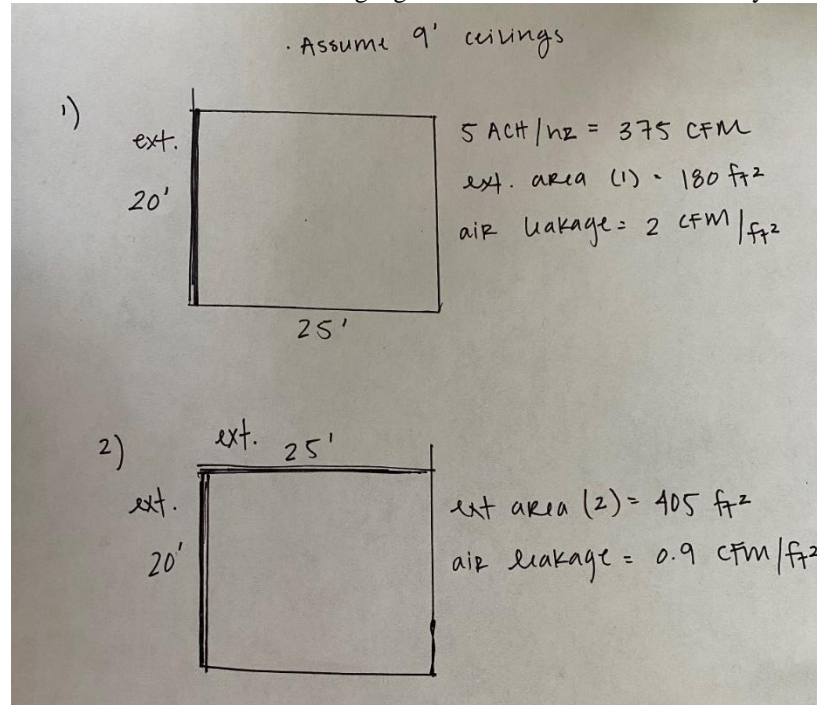 · Assume 9' ceilings
1)
ext.
20'
25'
5 ACH/hr = 375 CFM
ext. area (1) = 180 ft²
air leakage = 2 CFM/ft²
2)
ext. 25'
ext.
20'
ext area (2) = 405 ft²
air leakage = 0.9 CFM/ft²